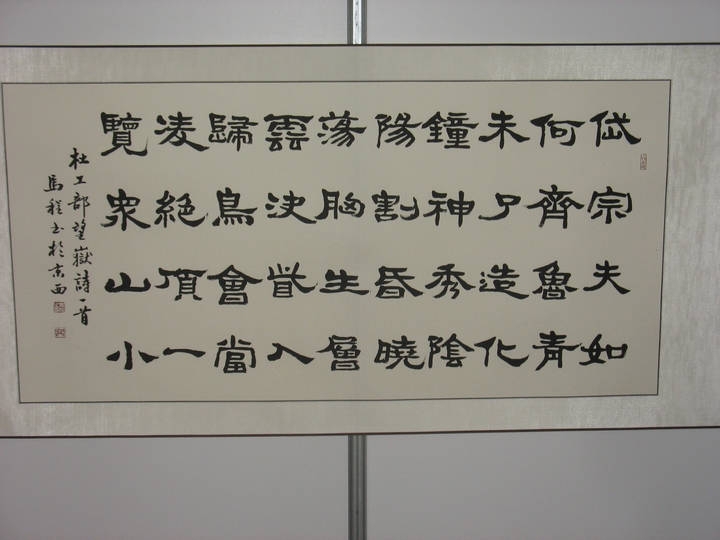 岱宗夫如
何齊魯青
未了造化
鐘神秀陰
陽割昏曉
蕩胸生層
雲決眥入
歸鳥會當
凌絕頂一
覽衆山小
杜工部望嶽詩一首
馬程书於京西